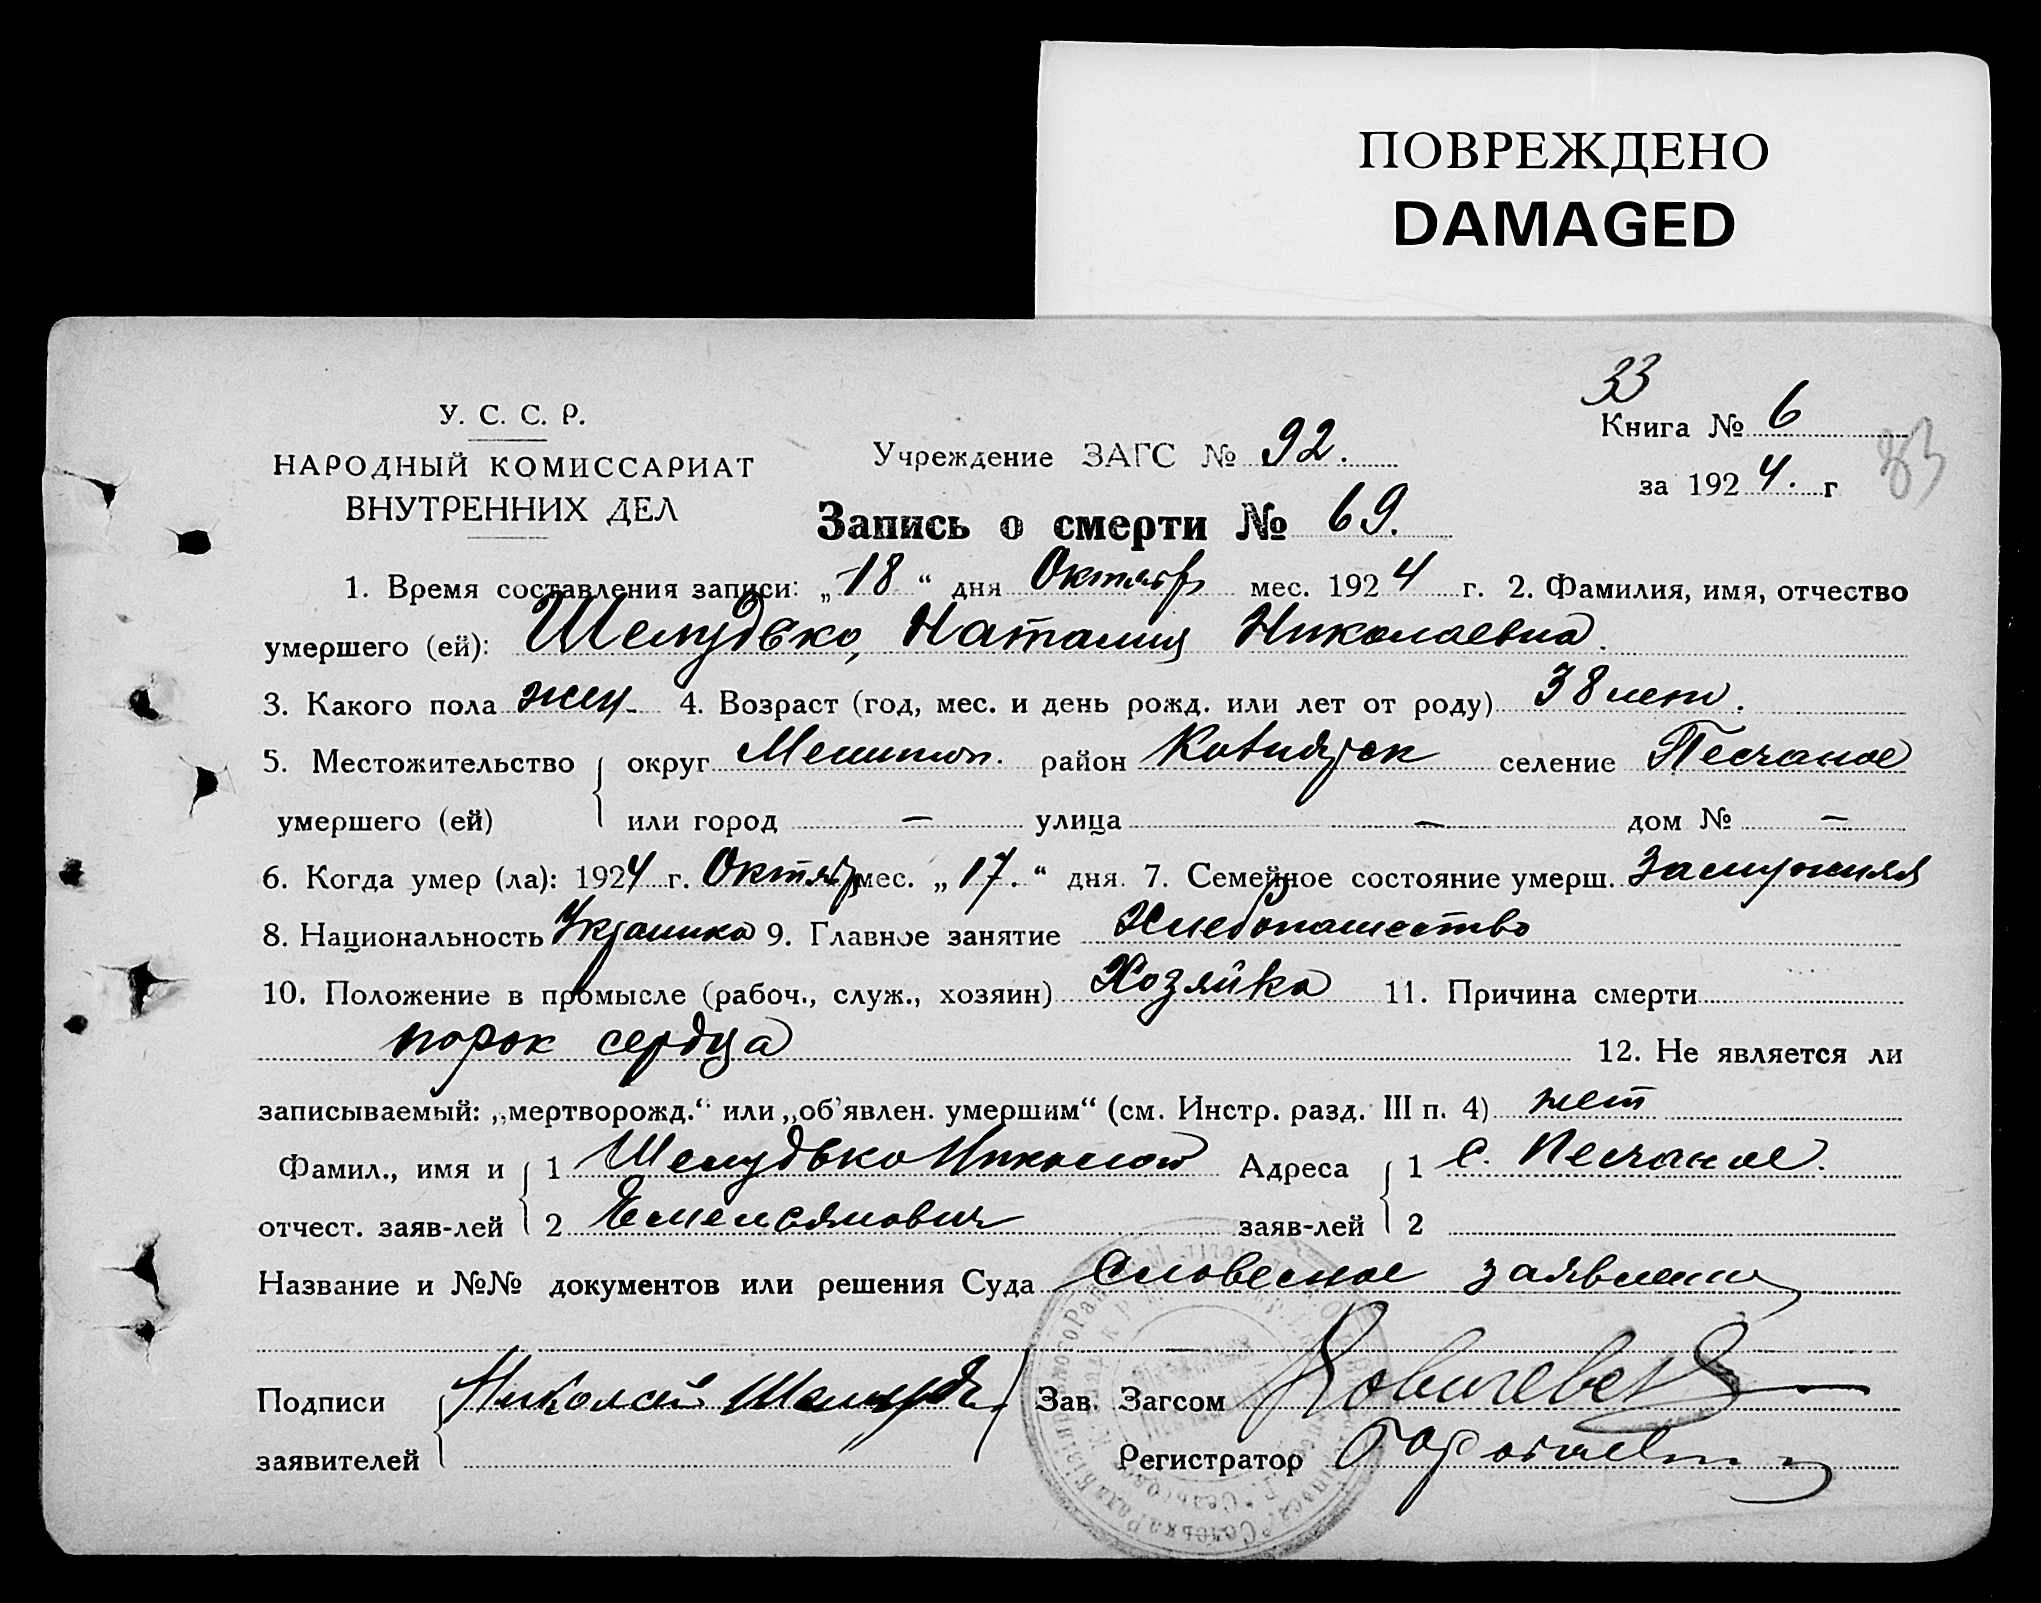 ПОВРЕЖДЕНО
DAMAGED
33
У. С. С. Р.
НАРОДНЫЙ КОМИССАРИАТ
ВНУТРЕННИХ ДЕЛ
Учреждение ЗАГС № 92.
Книга № 6
за 1924. г
83
Запись о смерти № 69.
1. Время составления записи: „18“ дня Октябр мес. 1924 г. 2. Фамилия, имя, отчество
умершего (ей): Шелудько, Наталия Николаевна.
3. Какого пола жен. 4. Возраст (год, мес. и день рожд. или лет от роду) 38 лет.
5. Местожительство округ Мелитоп. район селение Песчаное
умершего (ей) или город — улица — дом № —
6. Когда умер (ла): 1924 г. Октябр мес. „17.“ дня. 7. Семейное состояние умерш. Замужняя
8. Национальность Украинка 9. Главное занятие Хлебопашество
10. Положение в промысле (рабоч., служ., хозяин) Хозяйка 11. Причина смерти
порок сердца 12. Не является ли
записываемый: „мертворожд.“ или „об’явлен. умершим“ (см. Инстр. разд. III п. 4) нет
Фамил., имя и 1 Шелудько Николай Адреса 1 с. Песчаное.
отчест. заяв-лей 2 Емельянович заяв-лей 2
Название и №№ документов или решения Суда Словесное заявление
Подписи Николай Шелудь Зав. Загсом
заявителей Регистратор